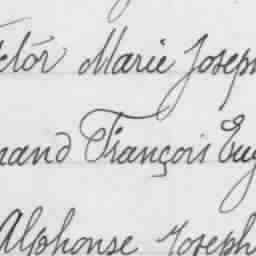 ctor Marie Joseph
nand François Eug
Alphonse Joseph